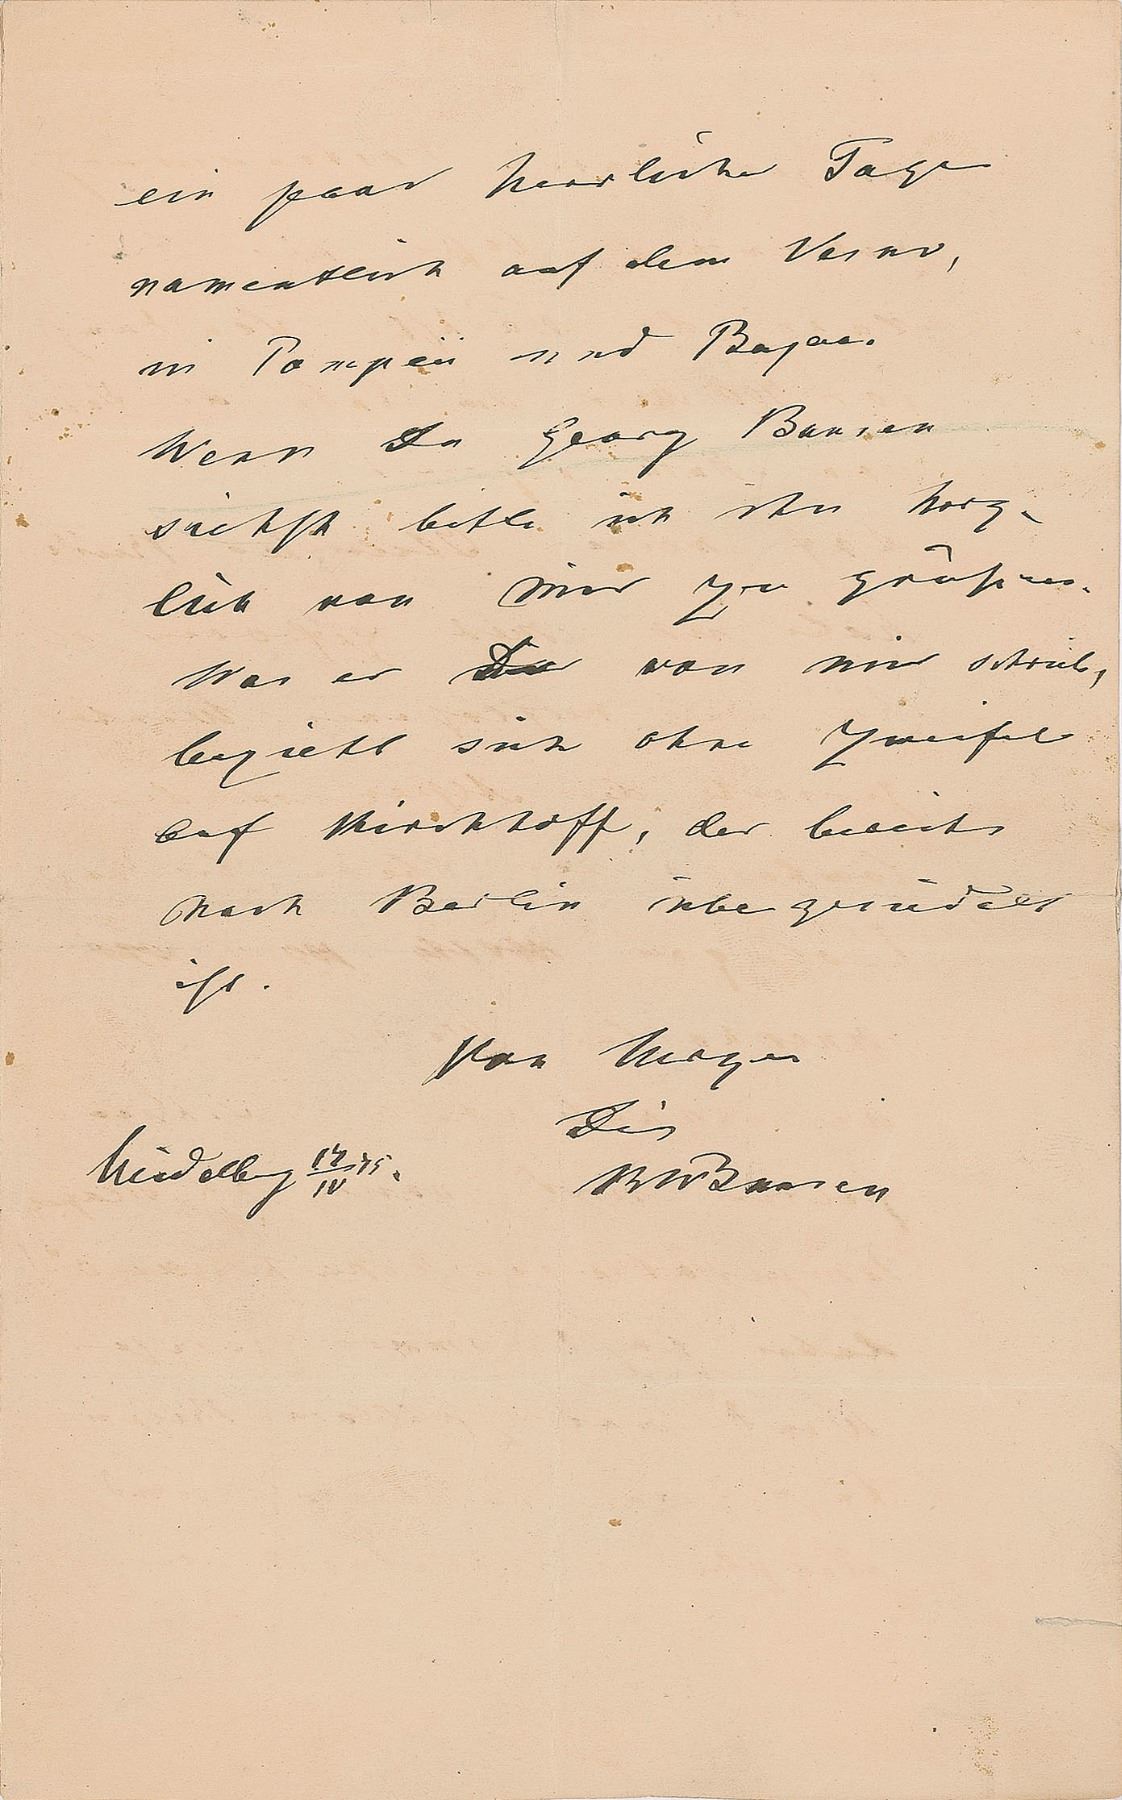 ein paar herrliche Tage
namentlich auf dem Vesuv,
in Pompeii und Bajae.
Wenn Du Georg Bunsen
siehst, bitte ich ihn herz-
lich von mir zu grüßen.
Was er von mir schrieb,
bezieht sich ohne Zweifel
auf Kirchhoff, der bereits
nach Berlin übergesiedelt
ist.
Von Herzen
Dein
RWBunsen
Heidelberg 75.
IV